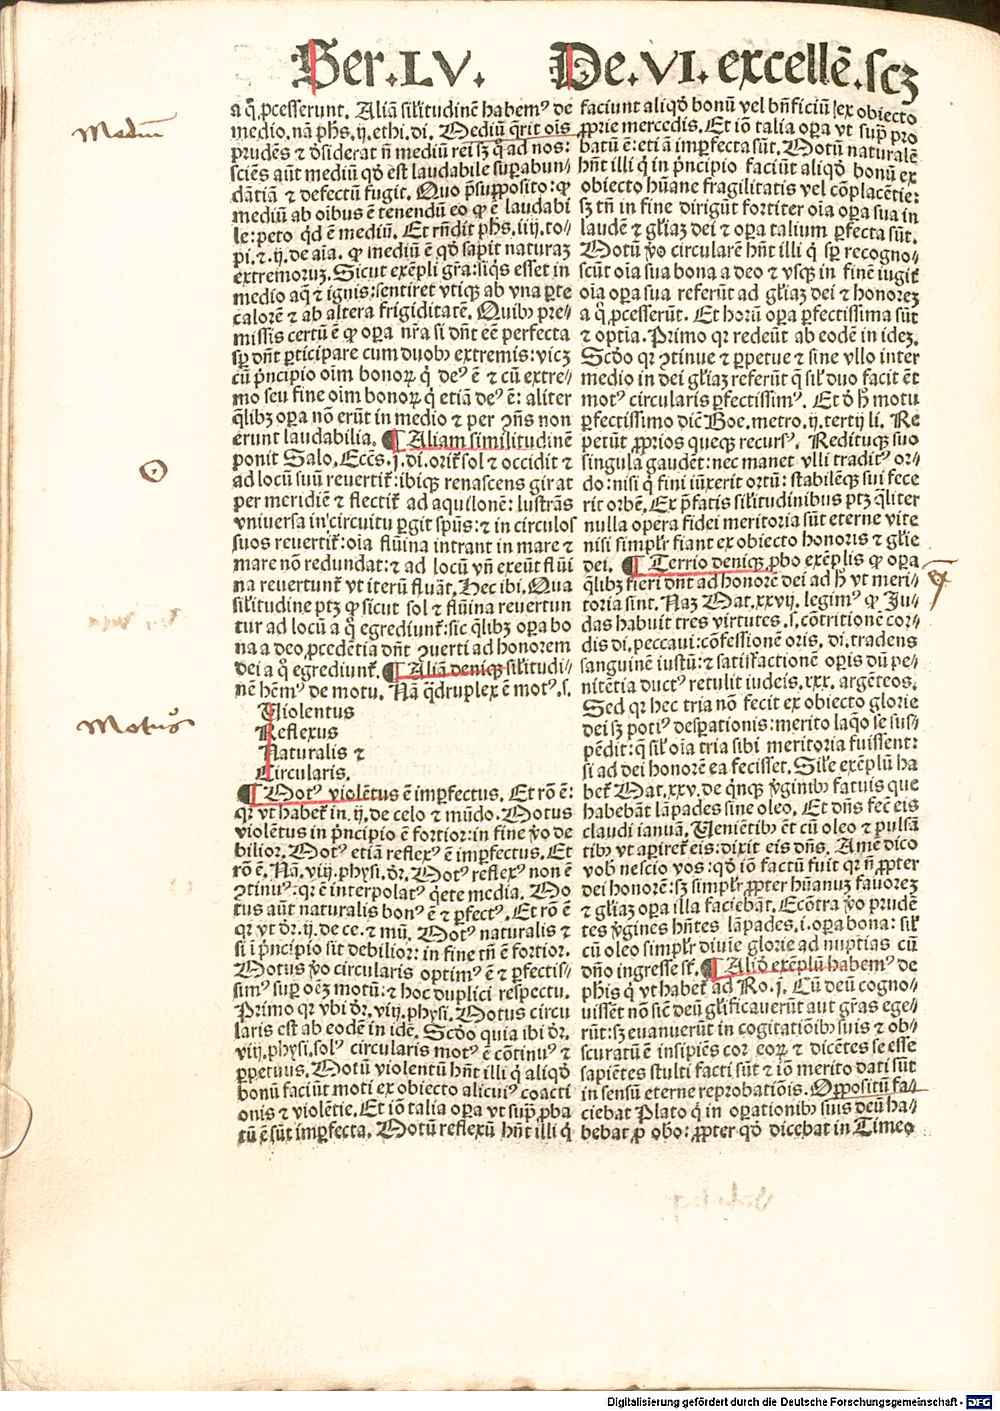 Ser. LV. De. VI. excellē. scꝫ
a q̊ ꝓcesserunt. Aliā sil'itudinē habemꝰ de
medio. nā phs. ij. ethi. di. Mediū q̄rit ois
prudēs ⁊ ꝺsiderat nō mediū rei sꝫ q̊ ad nos:
sciēs aūt mediū qd̓ est laudabile suꝑabun-
dātiā ⁊ defectū fugit. Quo p̄supposito: ꝙ
mediū ab oībus ē tenendū eo ꝙ ē laudabi
le: peto qd̓ ē mediū. Et rn̄dit phs. iiij. to-
pi. ⁊. ij. de aīa. ꝙ mediū ē qd̓ sapit naturaꝫ
extremoruꝫ. Sicut exēpli gr̄a: siq̇s esset in
medio aq̄ ⁊ ignis: sentiret vtiqꝫ ab vna ꝑte
calorē ⁊ ab altera frigiditatē. Quibꝰ pre-
missis certū ē ꝙ oꝑa nr̄a si dn̄t eē perfecta
sꝑ dn̄t ꝑticipare cum duobꝰ extremis: vicꝫ
cū p̄ncipio oīm bonoꝝ q̇ deꝰ ē ⁊ cū extre-
mo seu fine oīm bonoꝝ q̇ etiā deꝰ ē: aliter
q̄libꝫ oꝑa nō erūt in medio ⁊ per ꝯn̄s non
erunt laudabilia. ¶ Aliam similitudinē
ponit Salo. Ecēs. j. di. orit̉ sol ⁊ occidit ⁊
ad locū suū reuertit̉: ibiqꝫ renascens girat
per meridiē ⁊ flectit̉ ad aquilonē: lustrās
vniuersa in circuitu ꝑgit spūs: ⁊ in circulos
suos reuertit̉: oīa flūina intrant in mare ⁊
mare nōn redundat: ⁊ ad locū vn̄ exeūt flūi
na reuertunt̉ vt iterū fluāt. Hec ibi. Qua
sil'itudine ptꝫ ꝙ sicut sol ⁊ flūina reuertun
tur ad locū a q̊ egrediunt̉: sic q̄libꝫ oꝑa bo
na a deo ꝓcedētia dn̄t ꝯuerti ad honorem
dei a q̊ egrediunt̉. ¶ Aliā deniqꝫ sil'itudi-
nē hēmꝰ de motu. Nā q̈druplex ē motꝰ. s.
Uiolentus
Reflexus
Naturalis ⁊
Circularis.
¶ Motꝰ violētus ē imꝑfectus. Et rō ē:
qꝛ vt habet̉ in. ij. de celo ⁊ mūdo. Motus
violētus in p̄ncipio ē fortior: in fine v̓o de
bilior. Motꝰ etiā reflexꝰ ē imꝑfectus. Et
rō ē. Nā. viij. physi. dr̄. Motꝰ reflexꝰ non ē
ꝯtinuꝰ: qꝛ ē interpolatꝰ q̇ete media. Mo
tus aūt naturalis bonꝰ ē ⁊ ꝑfectꝰ. Et rō ē
qꝛ vt dr̄. ij. de ce. ⁊ mū. Motꝰ naturalis ⁊
si ī p̄ncipio sit debilior: in fine tn̄ ē fortior.
Motus v̓o circularis optimꝰ ē ⁊ ꝑfectis-
simꝰ suꝑ oēꝫ motū: ⁊ hoc duplici respectu.
Primo qꝛ vbi dr̄. viij. physi. Motus circu
laris est ab eodē in idē. Scd̓o quia ibi dr̄.
viij. physi. solꝰ circularis motꝰ ē cōtinuꝰ ⁊
ꝑpetuus. Motū violentū hn̄t illi q̇ aliqd̓
bonū faciūt moti ex obiecto alicuiꝰ coacti
onis ⁊ violētie. Et iō talia oꝑa vt supͣ ꝓba
tū ē sūt imꝑfecta. Motū reflexū hn̄t illi q̇
faciunt aliqd̓ bonū vel bn̄ficiū ex obiecto
ꝓprie mercedis. Et iō talia oꝑa vt supͣ pro
batū ē: etiā imꝑfecta sūt. Motū naturalē
hn̄t illi q̇ in p̄ncipio faciūt aliqd̓ bonū ex
obiecto hūane fragilitatis vel cōplacētie:
sꝫ tn̄ in fine dirigūt fortiter oīa oꝑa sua in
laudē ⁊ gl'iaꝫ dei ⁊ oꝑa talium ꝑfecta sūt.
Motū v̓o circularē hn̄t illi q̇ sꝑ recogno-
scūt oīa sua bona a deo ⁊ vsqꝫ in finē iugit̉
oīa oꝑa sua referūt ad gl'iaꝫ dei ⁊ honoreꝫ
a q̊ ꝓcesserūt. Et horū oꝑa ꝑfectissima sūt
⁊ optīa. Primo qꝛ redeūt ab eodē in ideꝫ.
Scd̓o qꝛ ꝯtinue ⁊ ꝑpetue ⁊ sine vllo inter
medio in dei gl'iaꝫ referūt q̄ sil' duo facit ēt
motꝰ circularis ꝑfectissimꝰ. Et ꝺ̓ h̊ motu
ꝑfectissimo dicū Boe. metro. ij. tertij li. Re
petūt ꝓprios queqꝫ recursꝰ. Redituqꝫ suo
singula gaudēt: nec manet vlli traditꝰ or-
do: nisi q̄ fini iūxerit ortū: stabilēqꝫ sui fece
rit orbē. Ex p̄fatis sil'itudinibus ptꝫ q̄liter
nulla opera fidei meritoria sūt eterne vite
nisi simpl'r fiant ex obiecto honoris ⁊ gl'ie
dei. ¶ Terrio deniqꝫ ꝓbo exēplis ꝙ oꝑa
q̄libꝫ fieri dn̄t ad honorē dei ad h̊ vt meri-
toria sint. Naꝫ Mat. xxvij. legimꝰ ꝙ Ju-
das habuit tres virtutes. s. cōtritionē cor-
dis di. peccaui: cōfessionē oris. di. tradens
sanguinē iustū: ⁊ satisfactionē oꝑis dū pe-
nitētia ductꝰ retulit iudeis. xxx. argēteos.
Sed qꝛ hec tria nō fecit ex obiecto glorie
dei sꝫ potiꝰ desꝑationis: merito laq̊o se sus-
pēdit: q̄ sil' oīa tria sibi meritoria fuissent:
si ad dei honorē ea fecisset. Sil'e exēplū ha
bet̉ Mat. xxv. de q̇nqꝫ v̓ginibꝰ fatuis que
habebāt lāpades sine oleo. Et dn̄s fec̄ eis
claudi ianuā. Ueniētibꝰ ēt cū oleo ⁊ pulsā
tibꝰ vt aꝑiret̉ eis: dixit eis dn̄s. Amē dico
vob̄ nescio vos: qd̓ iō factū fuit qꝛ nō ꝓpter
dei honorē: sꝫ simpl'r ꝓpter hūanuꝫ fauoreꝫ
⁊ gl'iaꝫ oꝑa illa faciebāt. Ecōtra v̓o prudē
tes v̓gines hn̄tes lāpades. i. oꝑa bona: sil'
cū oleo simpl'r diuīe glorie ad nuptias cū
dn̄o ingresse st̄. ¶ Aliud̓ exēplū habemꝰ de
ph̄is q̇ vt habet̉ ad Ro. j. Cū deū cogno-
uissēt nō sic̄ deū gl'ificauerūt aut gr̄as ege-
rūt: sꝫ euanuerūt in cogitatiōibꝰ suis ⁊ ob-
scuratū ē insipiēs cor eoꝝ ⁊ dicētes se esse
sapiētes stulti facti sūt ⁊ iō merito dati sūt
in sensū eterne reprobatiōis. Oppositū fa-
ciebat Plato q̇ in oꝑationibꝰ suis deū ha-
bebat ꝓ obo: ꝓpter qd̓ dicebat in Timeo
Mediū
Motus
Ex
Digitalisierung gefördert durch die Deutsche Forschungsgemeinschaft - DFG